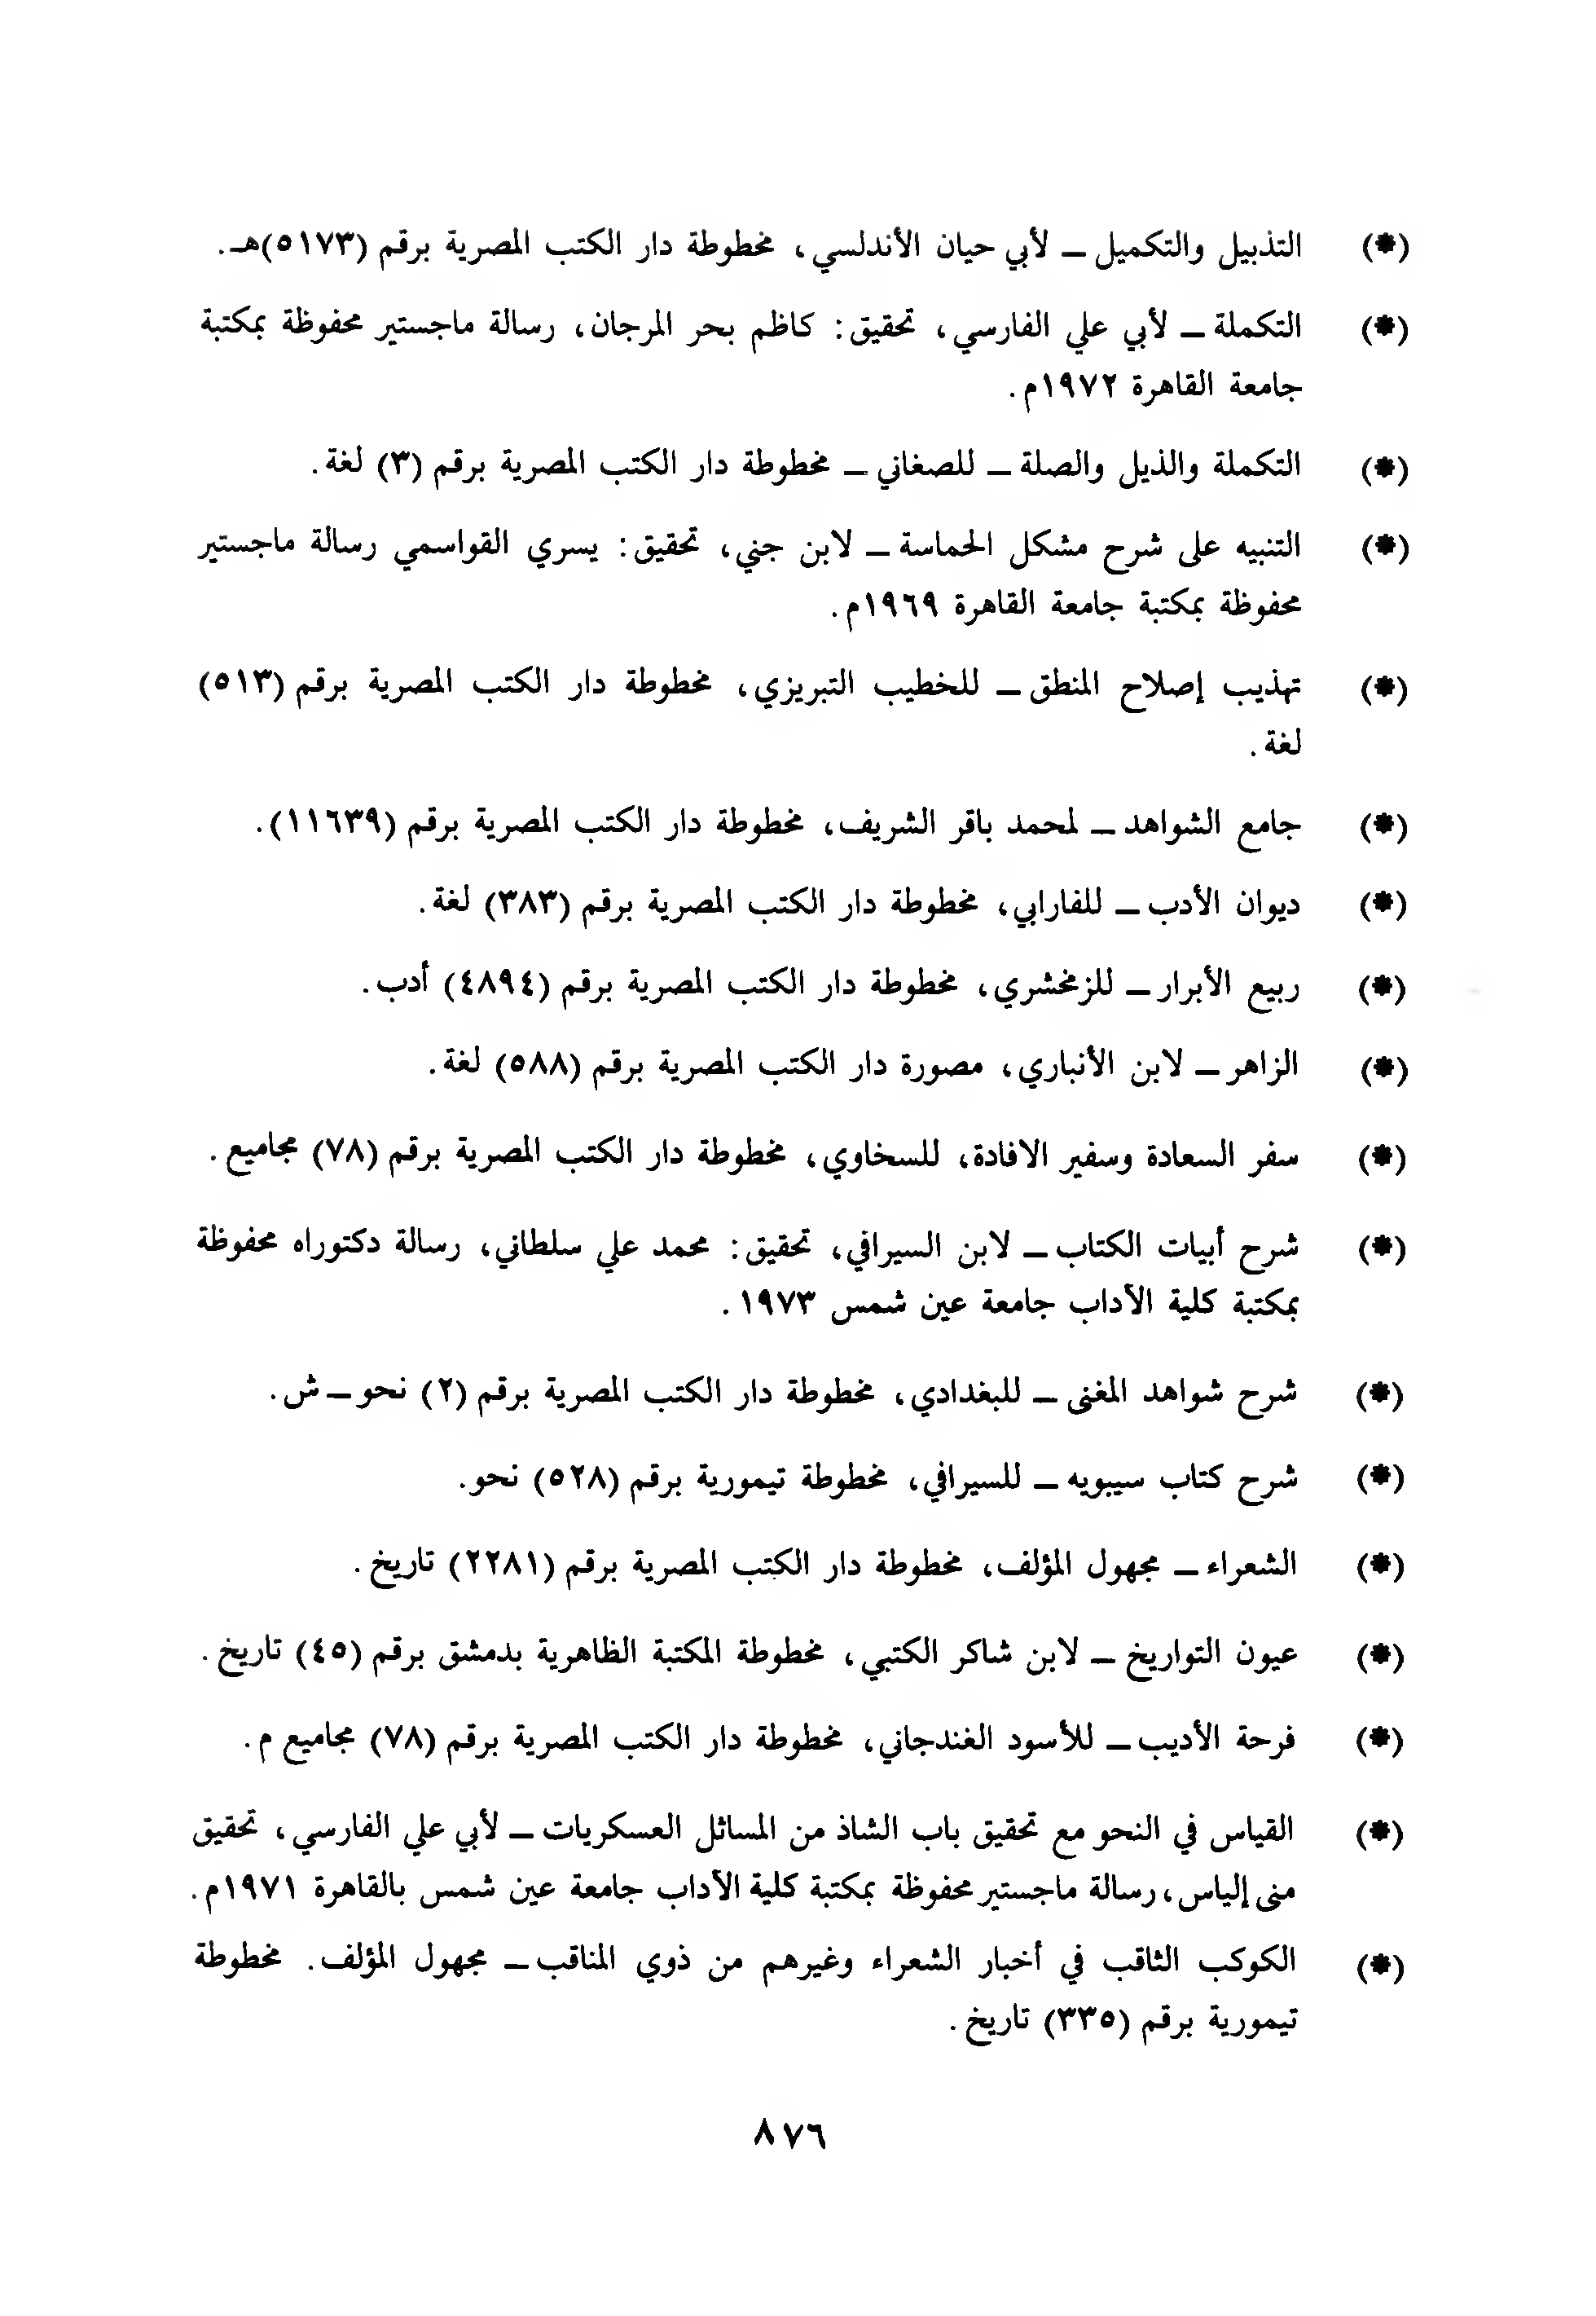 (*) التذبيل والتكميل ــ لأبي حيان الأندلسي، مخطوطة دار الكتب المصرية برقم (٥١٧٣)هـ.
(*) التكملة ــ لأبي علي الفارسي، تحقيق: كاظم بحر المرجان، رسالة ماجستير محفوظة بمكتبة
جامعة القاهرة ١٩٧٢م.
(*) التكملة والذيل والصلة ــ للصغاني ــ مخطوطة دار الكتب المصرية برقم (٣) لغة.
(*) التنبيه على شرح مشكل الحماسة ــ لابن جني، تحقيق: يسري القواسمي رسالة ماجستير
محفوظة بمكتبة جامعة القاهرة ١٩٦٩م.
(*) تهذيب إصلاح المنطق ــ للخطيب التبريزي، مخطوطة دار الكتب المصرية برقم (٥١٣)
لغة.
(*) جامع الشواهد ــ لمحمد باقر الشريف، مخطوطة دار الكتب المصرية برقم (١١٦٣٩).
(*) ديوان الأدب ــ للفارابي، مخطوطة دار الكتب المصرية برقم (٣٨٣) لغة.
(*) ربيع الأبرار ــ للزمخشري، مخطوطة دار الكتب المصرية برقم (٤٨٩٤) أدب.
(*) الزاهر ــ لابن الأنباري، مصورة دار الكتب المصرية برقم (٥٨٨) لغة.
(*) سفر السعادة وسفير الافادة، للسخاوي، مخطوطة دار الكتب المصرية برقم (٧٨) مجاميع.
(*) شرح أبيات الكتاب ــ لابن السيرافي، تحقيق: محمد علي سلطاني، رسالة دكتوراه محفوظة
بمكتبة كلية الآداب جامعة عين شمس ١٩٧٣.
(*) شرح شواهد المغنى ــ للبغدادي، مخطوطة دار الكتب المصرية برقم (٢) نحو ــ ش.
(*) شرح كتاب سيبويه ــ للسيرافي، مخطوطة تيمورية برقم (٥٢٨) نحو.
(*) الشعراء ــ مجهول المؤلف، مخطوطة دار الكتب المصرية برقم (٢٢٨١) تاريخ.
(*) عيون التواريخ ــ لابن شاكر الكتبي، مخطوطة المكتبة الظاهرية بدمشق برقم (٤٥) تاريخ.
(*) فرحة الأديب ــ للأسود الغندجاني، مخطوطة دار الكتب المصرية برقم (٧٨) مجاميع م.
(*) القياس في النحو مع تحقيق باب الشاذ من المسائل العسكريات ــ لأبي علي الفارسي، تحقيق
منى إلياس، رسالة ماجستير محفوظة بمكتبة كلية الآداب جامعة عين شمس بالقاهرة ١٩٧١م.
(*) الكوكب الثاقب في أخبار الشعراء وغيرهم من ذوي المناقب ــ مجهول المؤلف. مخطوطة
تيمورية برقم (٣٣٥) تاريخ.
٨٧٦